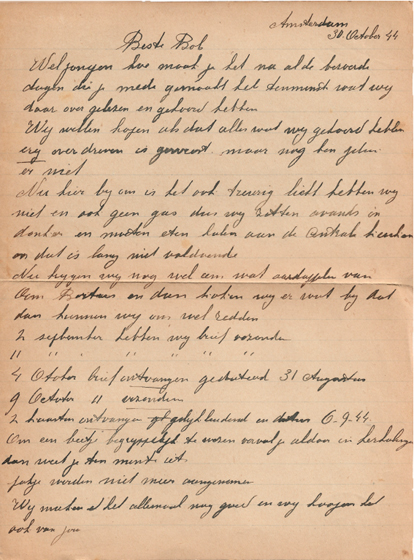 Amsterdam
30 October 44
Beste Bob
Wel jongen hoe maak je het na al de beroerde
dagen die je mede gemaakt het tenminste wat wy
daar over gelezen en gehoord hebben
Wy willen hopen als dat alles wat wy gehoord hebben
erg overdreven is geweest maar nog ben
er niet
Nu hier by ons is het ook treurig licht hebben wy
niet en ook geen gas dus wy zitten avonds in
donker en moeten eten halen aan de Centrale
en dat is lang niet voldoende
Nu krygen wy nog wel eens wat aardappelen van
Oom en dan koken wy er wat by dat
dan kunnen wy ons wel redden
2 september hebben wy brief verzonden
" " " " " "
4 Otober brief ontvangen gedateerd 31 Augustus
9 October " verzonden
2 kaarten ontvangen gelykluidend en datum 6.9.44
Om een beetje te wezen al daar in
dan weet je ten minste iets
pakje worden niet meer aangenomen
Wy maken et het allemaal nog goed en wy hoopen dat
ook van jou